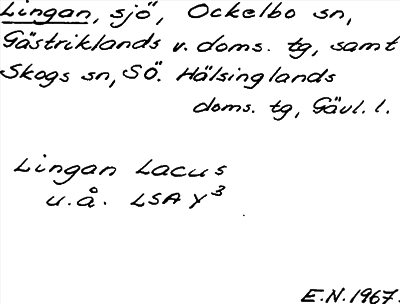 Lingan, sjö, Ockelbo sn,
Gästriklands v. doms. tg, samt
Skogs sn, SÖ. Hälsinglands
doms. tg, Gävl. l.
Lingan Lacus
u.å. LSA Y³
E.N. 1967.